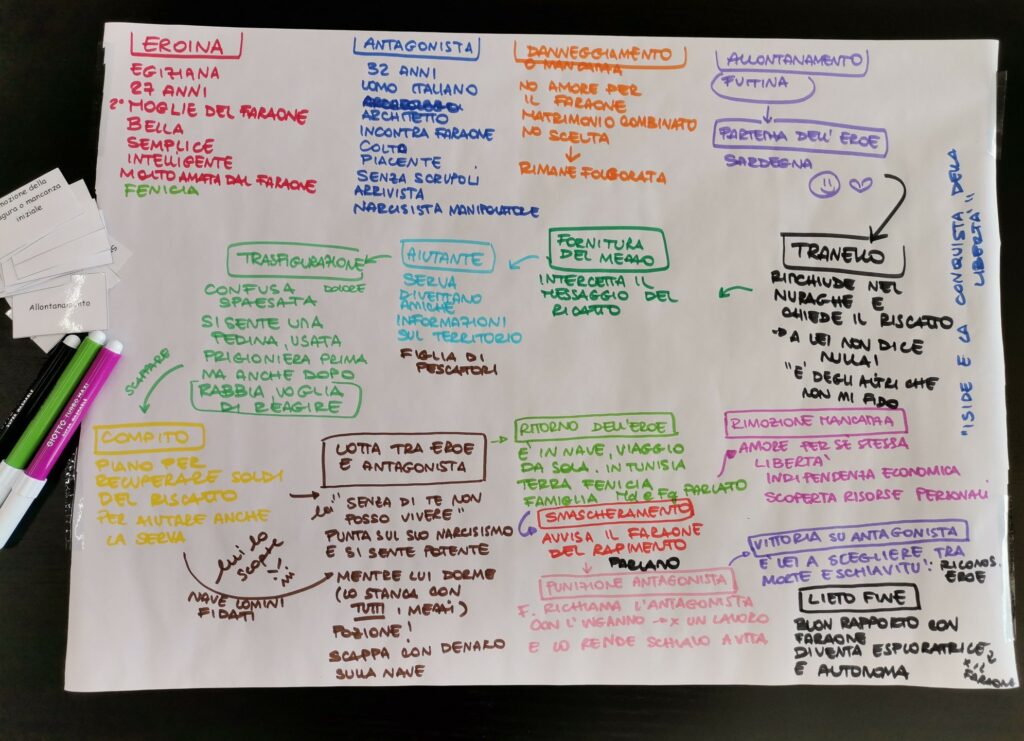 EROINA
EGIZIANA
27 ANNI
2ª MOGLIE DEL FARAONE
BELLA
SEMPLICE
INTELLIGENTE
MOLTO AMATA DAL FARAONE
FENICIA
ANTAGONISTA
32 ANNI
UOMO ITALIANO
ARCHITETTO
INCONTRA FARAONE
COLTO
PIACENTE
SENZA SCRUPOLI
ARRIVISTA
NARCISISTA MANIPOLATORE
DANNEGGIAMENTO
O MANCATA
NO AMORE PER
IL FARAONE
MATRIMONIO COMBINATO
NO SCELTA
RIMANE FOLGORATA
ALLONTANAMENTO
FUITINA
PARTENZA DELL' EROE
SARDEGNA
"ISIDE E LA CONQUISTA DELLA
LIBERTA'"
TRANELLO
RINCHIUDE NEL
NURAGHE E
CHIEDE IL RISCATTO
→ A LEI NON DICE
NULLA!
"E' DEGLI ALTRI CHE
NON MI FIDO
FORNITURA
DEL MEZZO
INTERCETTA IL
MESSAGGIO DEL
RICATTO
AIUTANTE
SERVA
DIVENTANO
AMICHE
INFORMAZIONI
SUL TERRITORIO
FIGLIA DI
PESCATORI
TRASFIGURAZIONE
CONFUSA DOLORE
SPAESATA
SI SENTE UNA
PEDINA, USATA
PRIGIONIERA PRIMA
MA ANCHE DOPO
RABBIA, VOGLIA
DI REAGIRE
SCAPPARE
COMPITO
PIANO PER
RECUPERARE SOLDI
DEL RISCATTO
PER AIUTARE ANCHE
LA SERVA
lui lo
scopre
NAVE UOMINI
FIDATI
LOTTA TRA EROE
E ANTAGONISTA
lei "SENZA DI TE NON
POSSO VIVERE"
PUNTA SUL SUO NARCISISMO
E SI SENTE POTENTE
MENTRE LUI DORME
(LO STANCA CON
TUTTI I MEZZI)
POZIONE!
SCAPPA CON DENARO
SULLA NAVE
RITORNO DELL'EROE
E' IN NAVE, VIAGGIO
DA SOLA. IN TUNISIA
TERRA FENICIA
FAMIGLIA Md e Fg PARLATO
SMASCHERAMENTO
AVVISA IL FARAONE
DEL RAPIMENTO
PARLANO
PUNIZIONE ANTAGONISTA
F. RICHIAMA L'ANTAGONISTA
CON L'INGANNO → X UN LAVORO
E LO RENDE SCHIAVO A VITA
RIMOZIONE MANCATA
AMORE PER SÈ STESSA
LIBERTA'
INDIPENDENZA ECONOMICA
SCOPERTA RISORSE PERSONALI
VITTORIA SU ANTAGONISTA
E' LEI A SCEGLIERE TRA
MORTE E SCHIAVITU'! RICONOS.
EROE
LIETO FINE
BUON RAPPORTO CON
FARAONE
DIVENTA ESPLORATRICE
E AUTONOMA
x il
FARAONE
iniziale
Allontanamento
GIOTTO TURBO MAXI